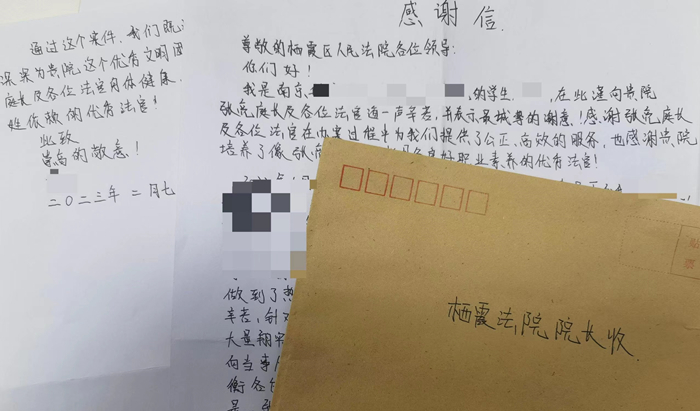 通过这个案件，我们既
深深为贵院这个优秀文明团
庭长及各位法官身体健康
此致
崇高的敬意！
二〇二三年 二月七
感谢信.
尊敬的栖霞区人民法院各位领导：
你们好！
我是南京 的学生 ，在此谨向贵院
张亮庭长及各位法官道一声辛苦，并表示最诚挚的谢意！感谢张亮庭长
及各位法官在办案过程中为我们提供了公正、高效的服务，也感谢贵院
培养了像张 良好职业素养的优秀法官！
做到了热
辛苦，针对
大量翔实
向当事
衡各
是，
栖霞法院院长收
贴
票